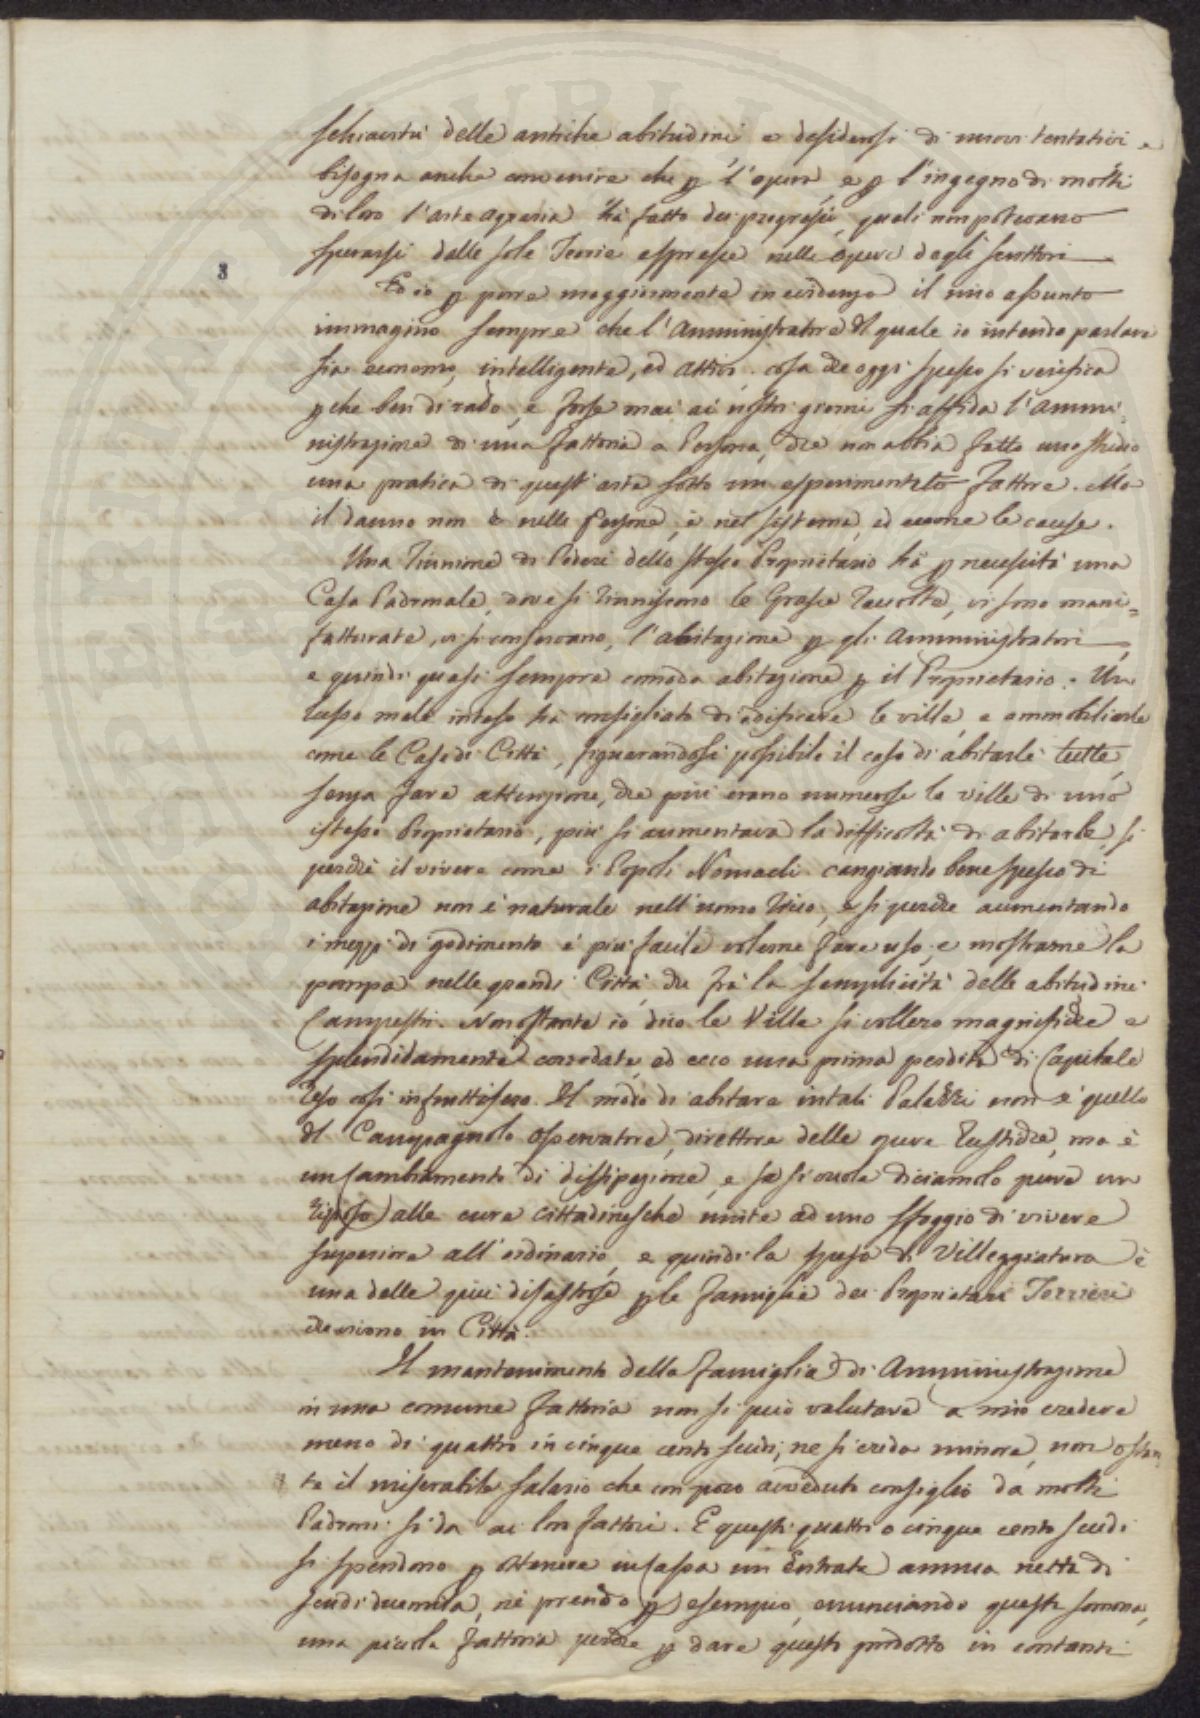 schiavitù delle antiche abitudini e desiderosi di nuovi tentativi e
bisogna anche convenire che p l'opera, e p l'ingegno di molti
di loro l'arte agraria hà fatto dei progressi, quali non potevano
sperarsi dalle sole Teorie espresse nelle opere degli scrittori
Ed io p porre maggiormente in evidenza il mio assunto
immagino sempre che l'Amministratore del quale io intendo parlare
sia economo, intelligente, ed attivo, cosa che oggi spesso si verifica
pche ben di rado, e forse mai ai nostri giorni si affida l'ammi-
nistrazione di una fattoria a Persona, che non abbia fatto uno studio
una pratica di quest'arte sotto un esperimentato Fattore. Ma
il danno non è nelle Persone, è nel sistema, ed eccone le cause.
Una riunione di Poderi dello stesso Proprietario hà p necessità una
Casa Padronale, dove si riuniscono le Grasce raccolte, vi sono mani=
fatturate, vi si conservano, l'abitazione p gli Amministratori
e quindi quasi sempre comoda abitazione p il Proprietario. Un
lusso male inteso hà consigliato di edificare le ville, e ammobiliarle
come le Case di Città, figurandosi possibile il caso di abitarle tutte,
senza fare attenzione, che più erano numerose le ville di uno
istesso Proprietario, più si aumentava la difficoltà di abitarle, si
perchè il vivere come i Popoli Nomadi cangiando bene spesso di
abitazione non è naturale nell'uomo ricco, e si perchè aumentando
i mezzi di godimento è più facile volerne fare uso, e mostrarne la
pompa nelle grandi Città, che frà la semplicità delle abitudini
Campestri. Nonostante io dico le Ville si vollero magnifiche e
splendidamente corredate, ed ecco una prima perdita di Capitale
reso così infruttifero. Il modo di abitare in tali Palazzi non è quello
del Campagnolo osservatore, direttore delle opere rustiche, ma è
un cambiamento di dissipazione, e se si vuole diciamolo pure un
riposo alle cure cittadinesche unite ad uno sfoggio di vivere
superiore all'ordinario, e quindi la spesa di Villeggiatura è
una delle più disastrose p le famiglie dei Proprietari Terrieri
che vivono in Città.
Il mantenimento della famiglia di Amministrazione
in una comune fattoria non si può valutare a mio credere
meno di quattro in cinque cento scudi, ne si creda minore, non ostan
te il miserabile salario che con poco avveduto consiglio da molti
Padroni si da ai loro fattori. E questi quattro o cinque cento scudi
si spendono p ottenere in cassa un'Entrata annua netta di
scudi duemila, nè prendo p esempio, enunciando questa somma,
una piccola fattoria perchè p dare questo prodotto in contanti